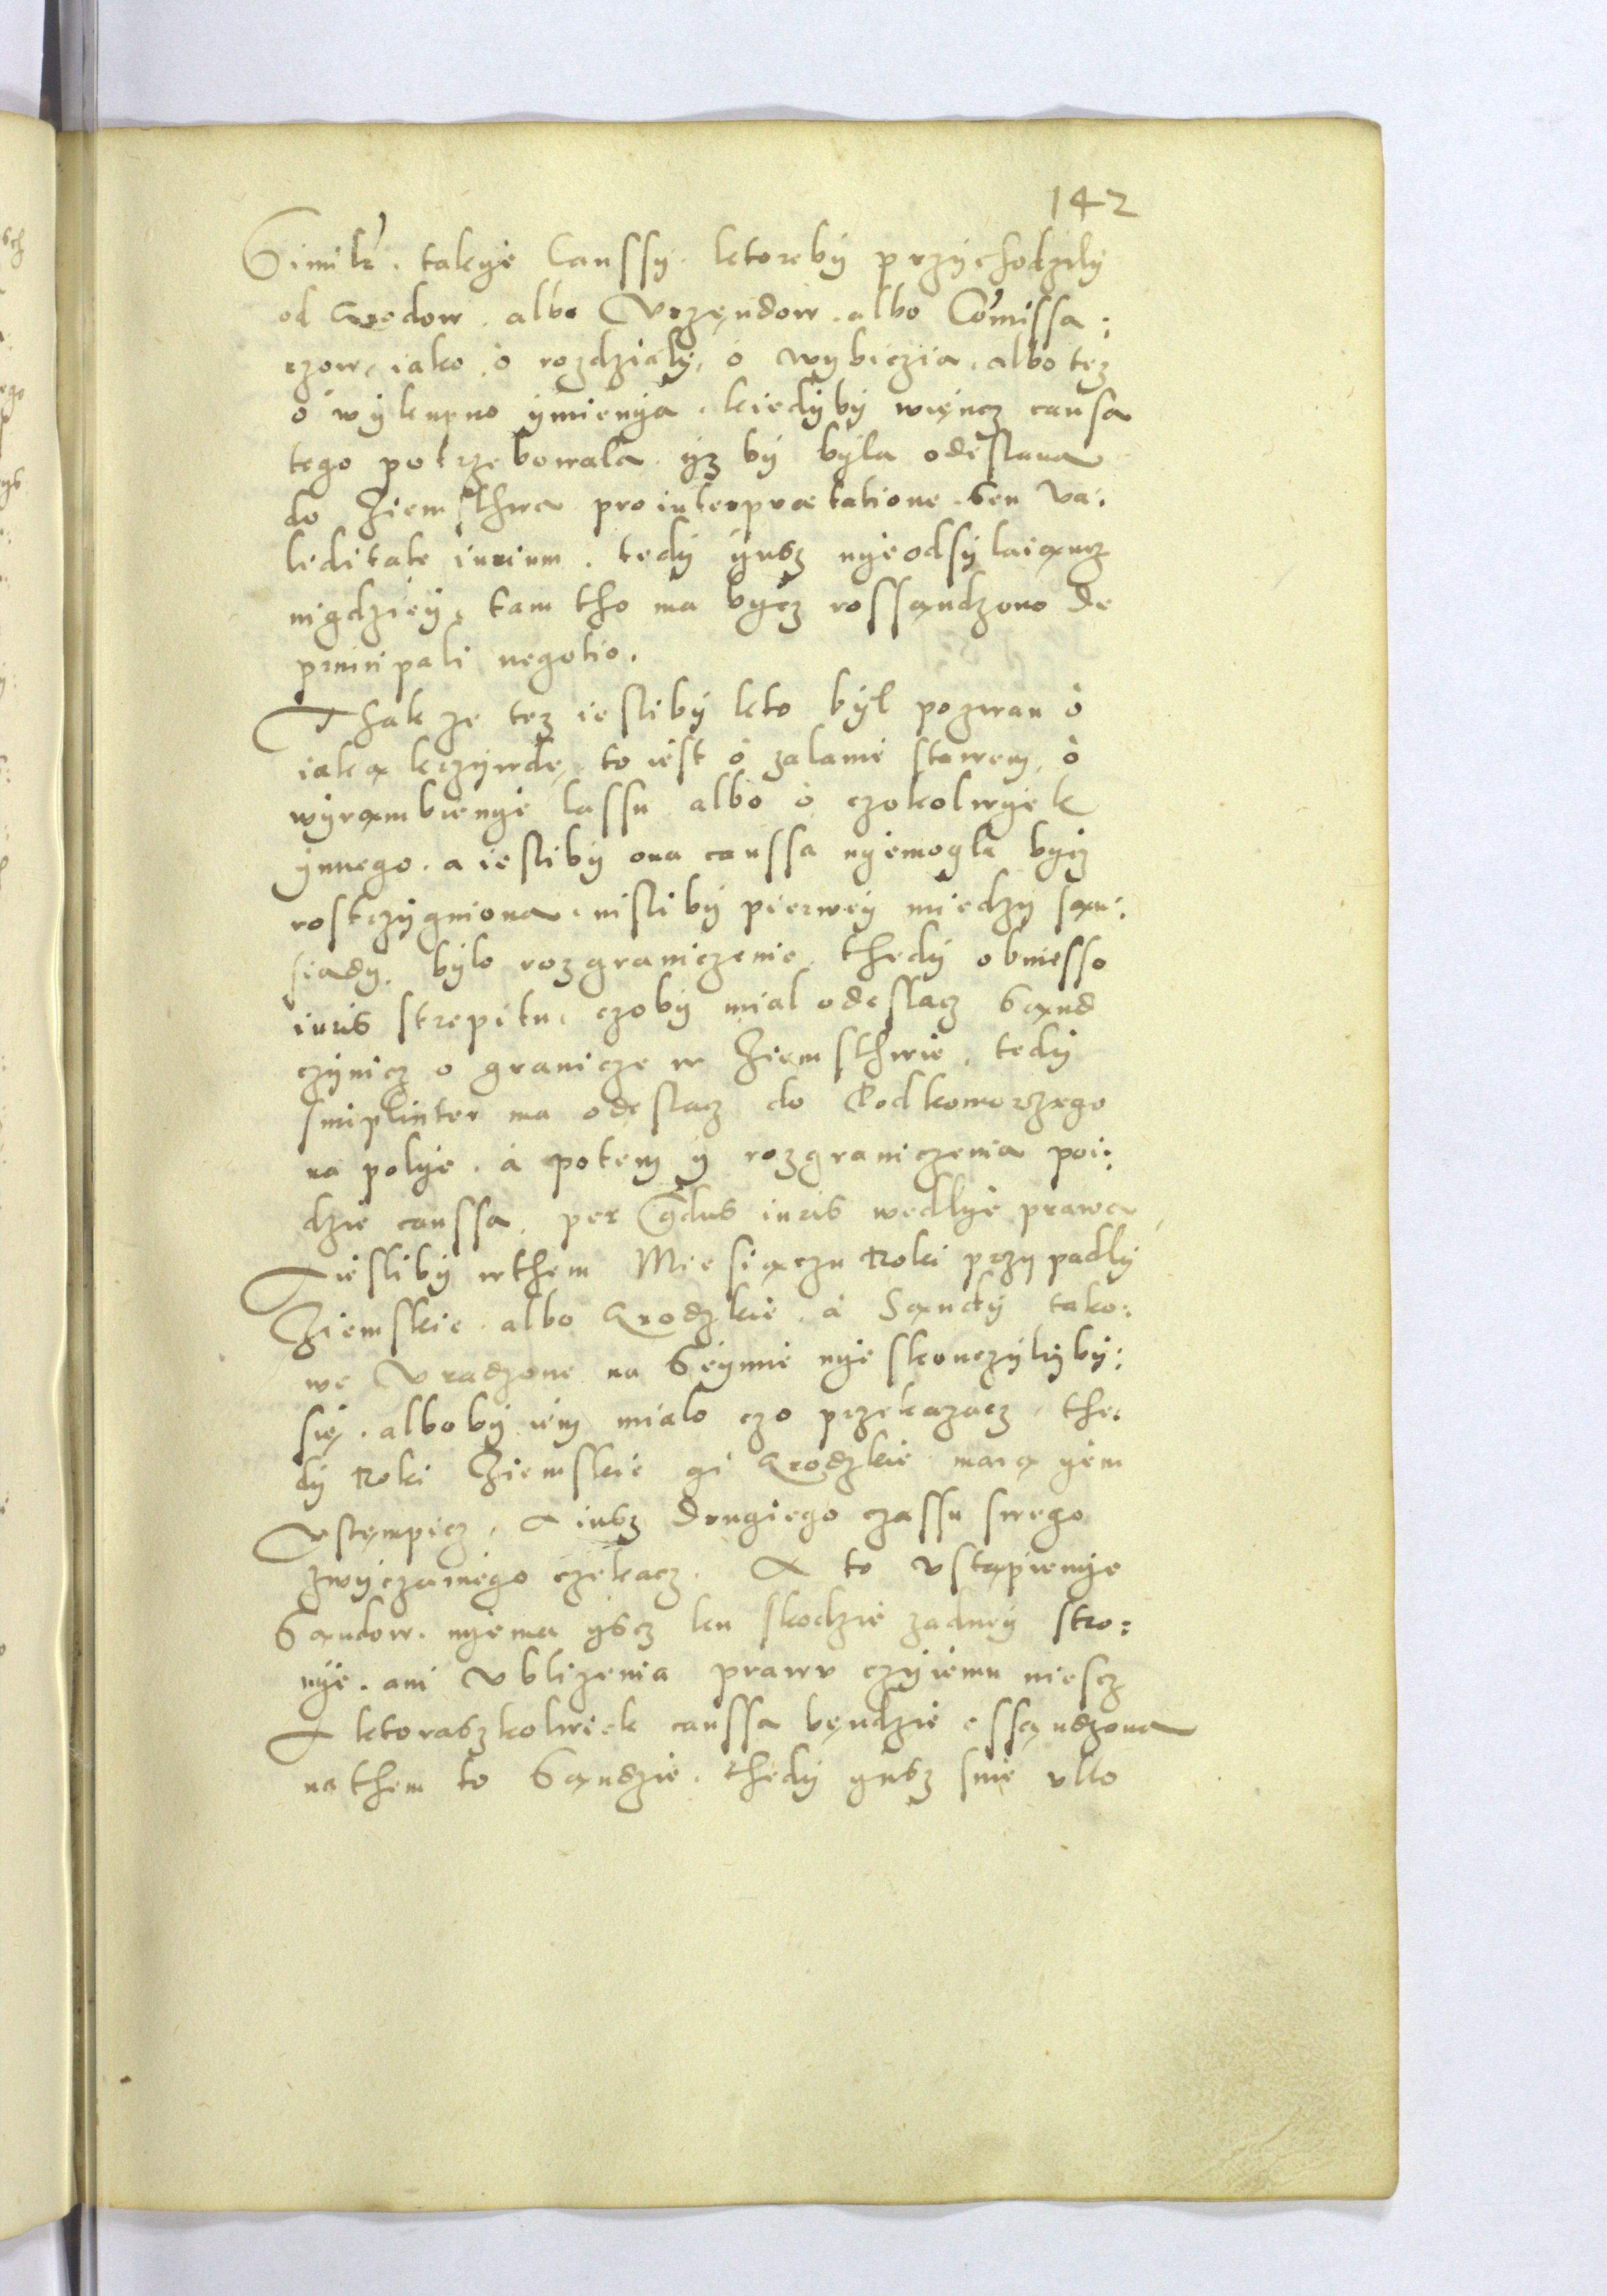 142
Similr. takÿe Caussÿ. ktorebÿ przÿchodzilÿ
od Grodow. albo Vrzęndow. albo Comissa:
rzow, iako, ò rozdzialÿ, ò wybiczia. albo tez
ò wÿkupno ÿmienÿa. kiedÿbÿ więncz causa
tego potrzebowala ÿz bÿ bÿla odeslana
do Ziemsthwa pro interprætatione. seu va:
liditate iurium. tedÿ ÿusz nÿeodsÿlaiąncz
nigdzieÿ, tam tho ma bycz rossąndzono de
principali negotio.
Thak ze tez iesliby kto bÿl pozwan ò
iaką krzÿwdę, to iest ò zalanie stawem, ò
wÿrąmbienÿe lassu albo ò czokolwÿek
ÿnnego. a ieslibÿ ona caussa nÿemogla bycz
rostrzÿgniona. nislibÿ pierweÿ miedzÿ sąn:
siadÿ. bÿlo rozgraniczenie. thedÿ obmiesso
iuris strepitu, czobÿ mial odeslacz Sąnd
czÿnicz o granicze w Ziemsthwie. tedÿ
simpliciter ma odeslacz do Podkomorzego
na polÿe. à potem ÿ rozgraniczenia poi:
dzie caussa. per Gdus iuris wedlÿe prawa
Iieslibÿ wthem Miesiączu Roki przypadlÿ
Ziemskie. albo Grodzkie. à Sąndÿ tako:
we Vradzone na Seÿmie nÿe skonczÿlÿbÿ:
się. albobÿ iem mialo czo przekazacz. the:
dÿ Roki Ziemskie ÿi Grodzkie maią ÿem
Vstęmpicz. A iusz drugiego czassu swego
zwÿczainego czekacz. A to vstąpienÿe
Sąndow. nÿema ÿscz ku skodzie zadneÿ stro:
nÿe. ani Vblizenia prawu czÿiemu niescz
A ktoraszkolwiek caussa bęndzie ossąndzona
nathem to Sąndzie. thedÿ ÿusz sine vllo